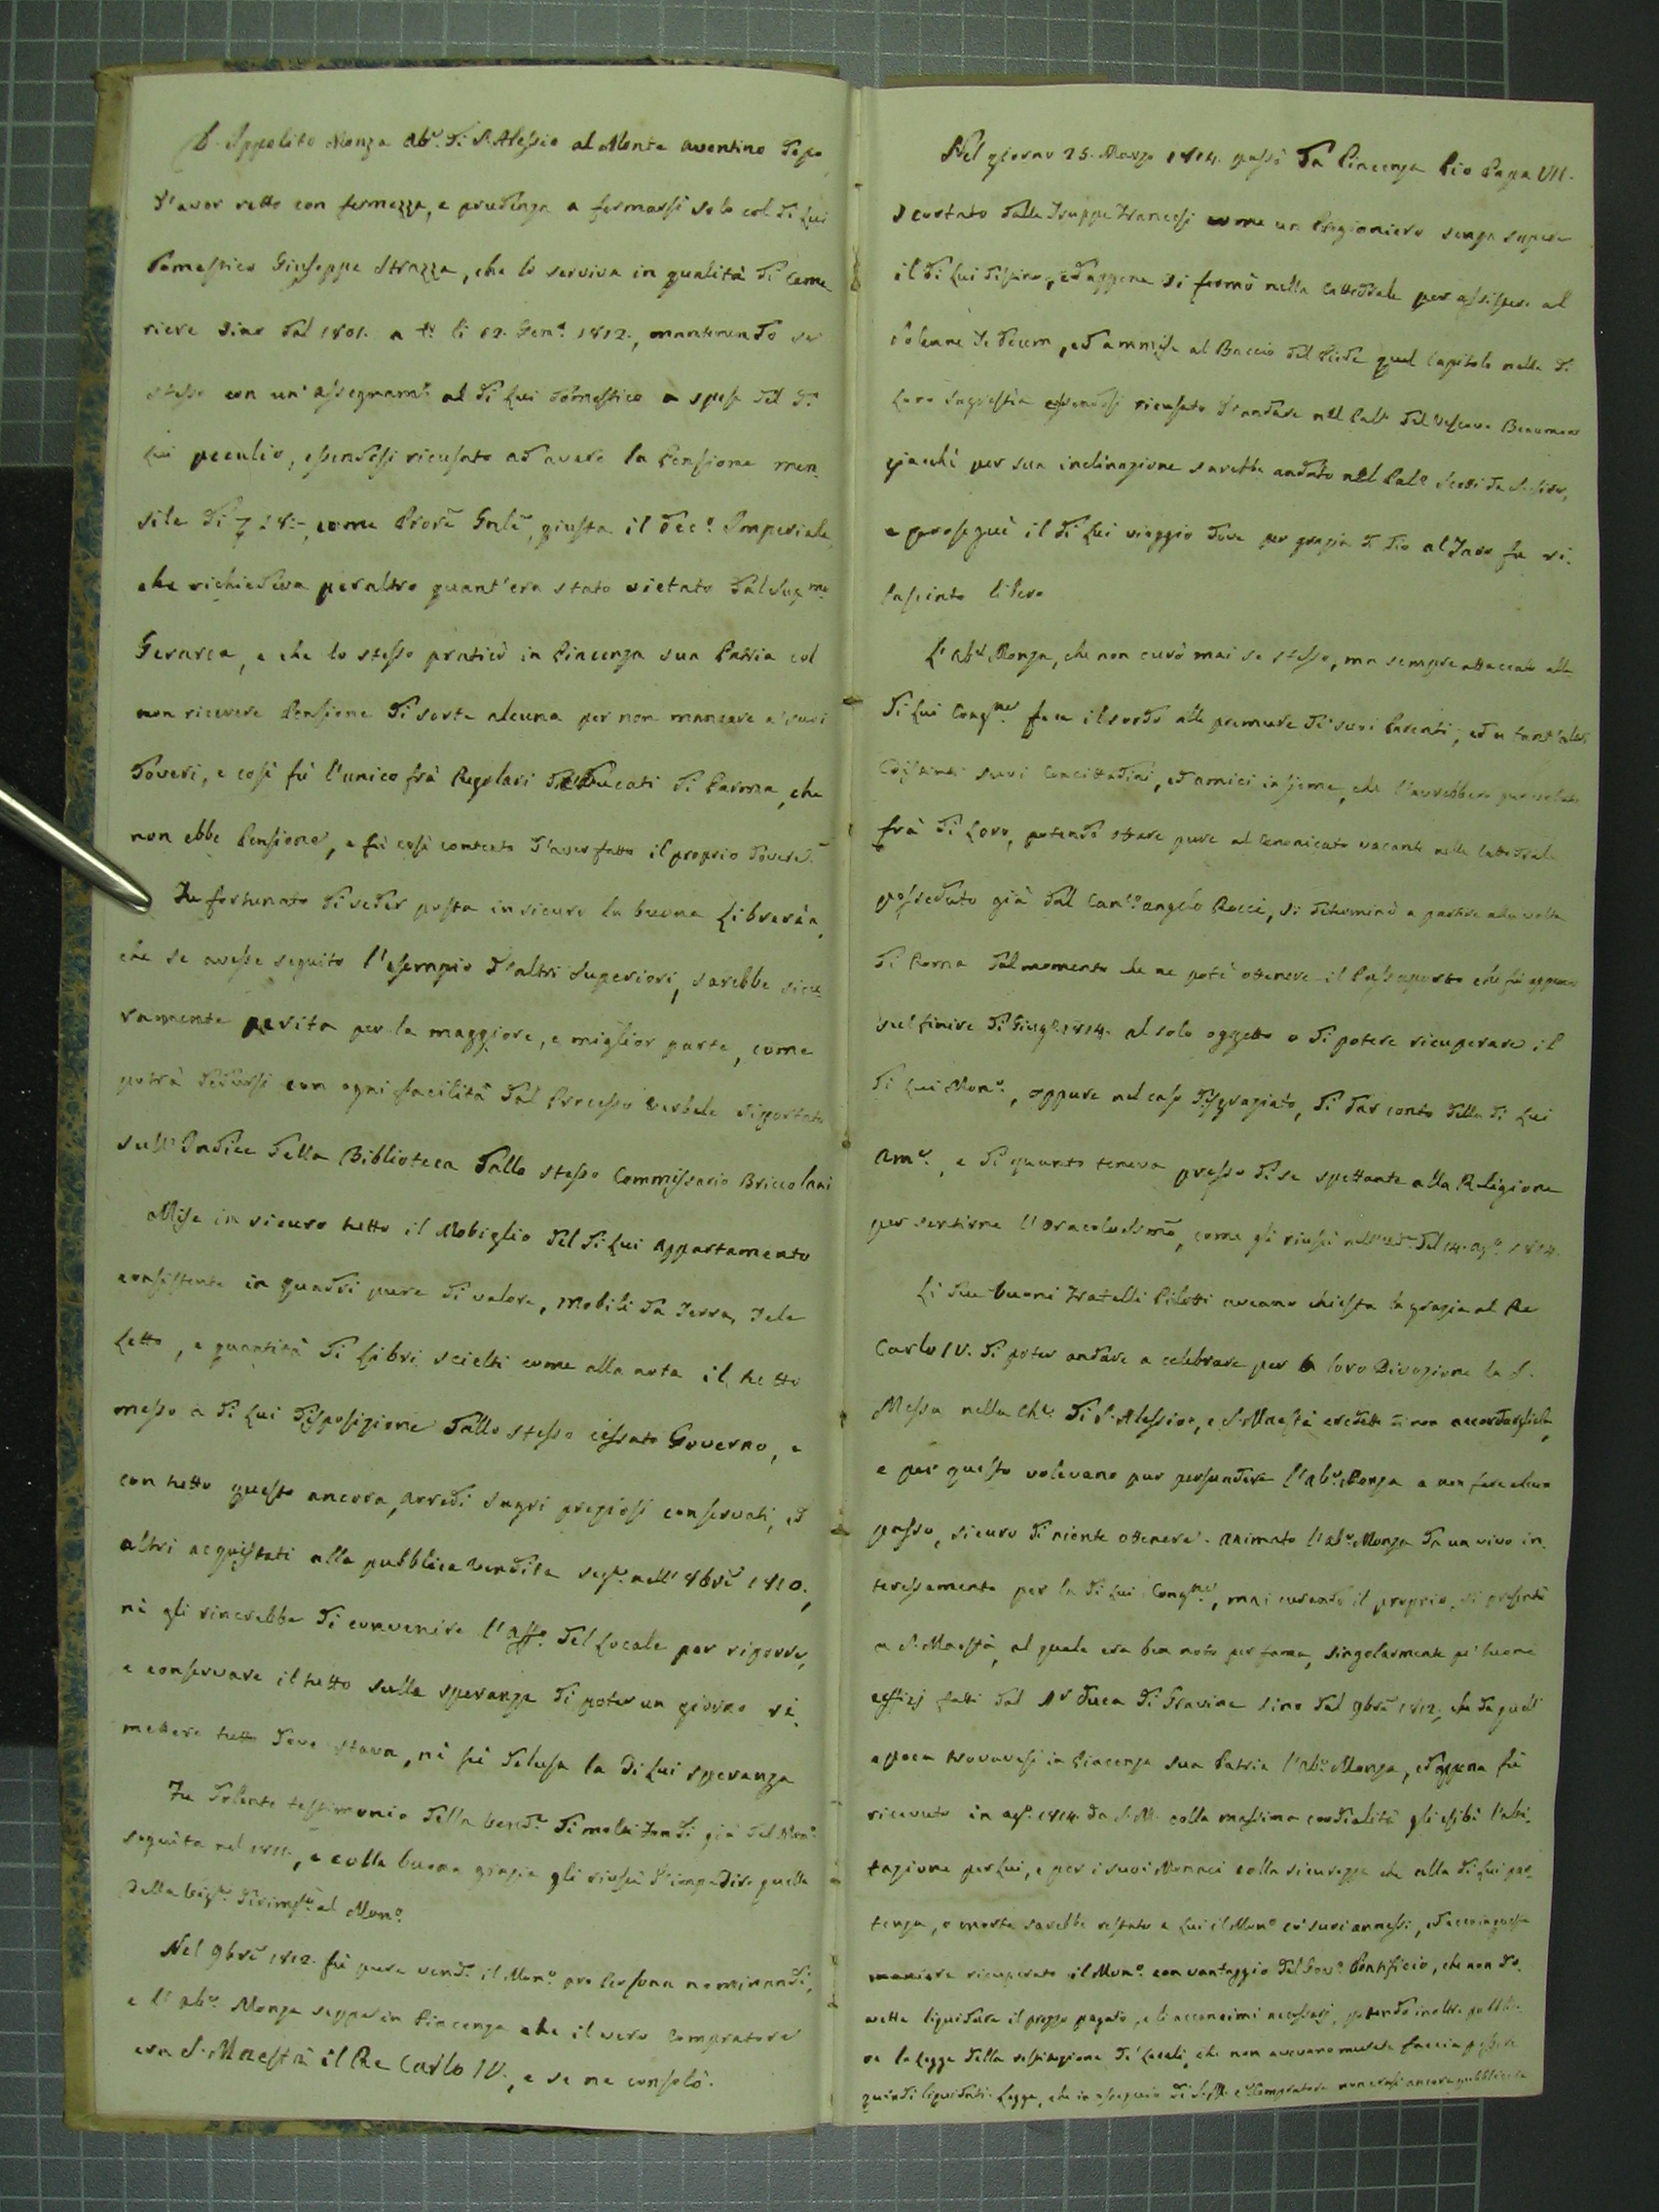 D. Ippolito Monza Ab.e di S. Alessio al Monte Aventino dopo
d'aver retto con fermezza, e prudenza a fermarsi solo col di Lui
Domestico Giuseppe Strazza, che lo serviva in qualità di Came
riere sino dal 1801. a li 12. Gen.o 1812., mantenendo se
stesso con un' assegnam.o al di Lui Domestico a spese del di
Lui peculio, essendosi ricusato ad avere la Pensione men
sile di 28:-, come Prore Gnle, giusta il Dec.o Imperiale,
che richiedeva peraltro quant'era stato vietato dal Sup.mo
Gerarca, e che lo stesso praticò in Piacenza sua Patria col
non ricevere Pensione di sorte alcuna per non mancare a' suoi
Doveri, e così fù l'unico frà Regolari de Ducati di Parma, che
non ebbe Pensione, e fù così contento d'aver fatto il proprio Dovere.
Fu fortunato di veder posta in sicuro la buona Libreria,
che se avesse seguito l'esempio d'altri Superiori, sarebbe sicu
ramente perita per la maggiore, e miglior parte, come
potrà dedursi con ogni facilità dal Processo verbale riportato
sull' Indice della Biblioteca dallo stesso Commissario Briccolani
Mise in sicuro tutto il Mobiglio del di Lui Appartamento
consistente in Quadri pure di valore, Mobili da Terra, Tele
Letto, e quantità di Libri scielti come alla nota il tutto
messo a di Lui disposizione dallo stesso cessato Governo, e
con tutto questo ancora, Arredi sagri preziosi conservati, ed
altri acquistati alla pubblica Vendita seg.ta nell' 8bre 1810.,
nè gli rincrebbe di convenire l'Aff.o del Locale per riporre,
e conservare il tutto sulla speranza di poter un giorno ri
mettere tutto dove stava, nè fù delusa la di Lui speranza
Fu dolente testimonio della Vend.a di molti Fondi già del Mon.o
seguita nel 1811., e colla buona grazia gli riuscì d'impedire quella
della Vig.a dirimp.o al Mon.o
Nel 9bre 1812. fù pure vend.o il Mon.o pro Persona nominandi,
e l'Ab.e Monza seppe in Piacenza che il vero Compratore
era S. Maestà il Re Carlo IV., e se ne consolò.
Nel giorno 25. Marzo 1814. passò da Piacenza Pio Papa VII.
scortato dalle Truppe Francesi come un Prigioniero senza sapere
il di Lui destino, ed appena si fermò nella Cattedrale per assistere al
solenne Te Deum, ed ammise al Baccio del Piede quel Capitolo nella di
Loro Sagrestia essendosi ricusato d'andare nel Pal.o del Vescovo Beaumont
giacchè per sua inclinazione sarebbe andato nel Pal.o Scotti da S. Sisto,
e proseguì il di Lui viaggio dove per grazia di Dio al Taro fu ri
lasciato libero
L'Ab.e Monza, che non curò mai se stesso, ma sempre attaccato alla
di Lui Cong.ne fece il sordo alle premure de' suoi Parenti, ed a tant'altri
distinti suoi Concittadini, ed amici insieme, che l'avrebbero
frà di Loro, potendo stare pure al Canonicato vacante nella Cattedrale
posseduto già dal Can.co Angelo Rocci, si determinò a partire alla volta
di Roma dal momento che ne potè ottenere il Passaporto che fù appena
sul finire di Giug.o 1814. al solo oggetto o di potere ricuperare il
di Lui Mon.o, oppure nel caso disgraziato, di dar conto della di Lui
Am.e, e di quanto teneva presso di se spettante alla Religione
per sentirne l'Oracolo, come gli riuscì nell' del 14. Ag.o 1814.
Li due buoni Fratelli Pilotti aveano chiesta la grazia al Re
Carlo IV. di poter andare a celebrare per la loro Divozione la S.
Messa nella Ch.a di S. Alessio, e S. Maestà credette di non accordargliela,
e per questo volevano pur persuadere l'Ab.e Monza a non fare alcun
passo, sicuro di niente ottenere. Animato l'Ab.e Monza da un vivo in
teressamento per la di Lui Cong.ne, mai curando il proprio, si presentò
a S. Maestà, al quale era ben noto per fama, singolarmente pe' buoni
effizj fatti dal Sr Duca di Gravina sino dal 9bre 1812., che da quell'
epoca trovavasi in Piacenza sua Patria l'Ab.e Monza, ed appena fù
ricevuto in Ag.o 1814. da S. M. colla massima cordialità gli esibì l'abi
tazione per Lui, e per i suoi Monaci colla sicurezza che alla di Lui par
tenza, o morte sarebbe restato a Lui il Mon.o co' suoi annessi, ed ecco in questa
maniera ricuperato il Mon.o con vantaggio del Gov.o Pontificio, che non do
vette liquidare il prezzo pagato, e li acconcimi necessarj, potendo inoltre pubblica
re la Legge della restituzione de' Locali, che non avevano mutata faccia
quindi liquidati. Legge, che in ossequio di S. M. il Compratore non erasi ancora pubblicata